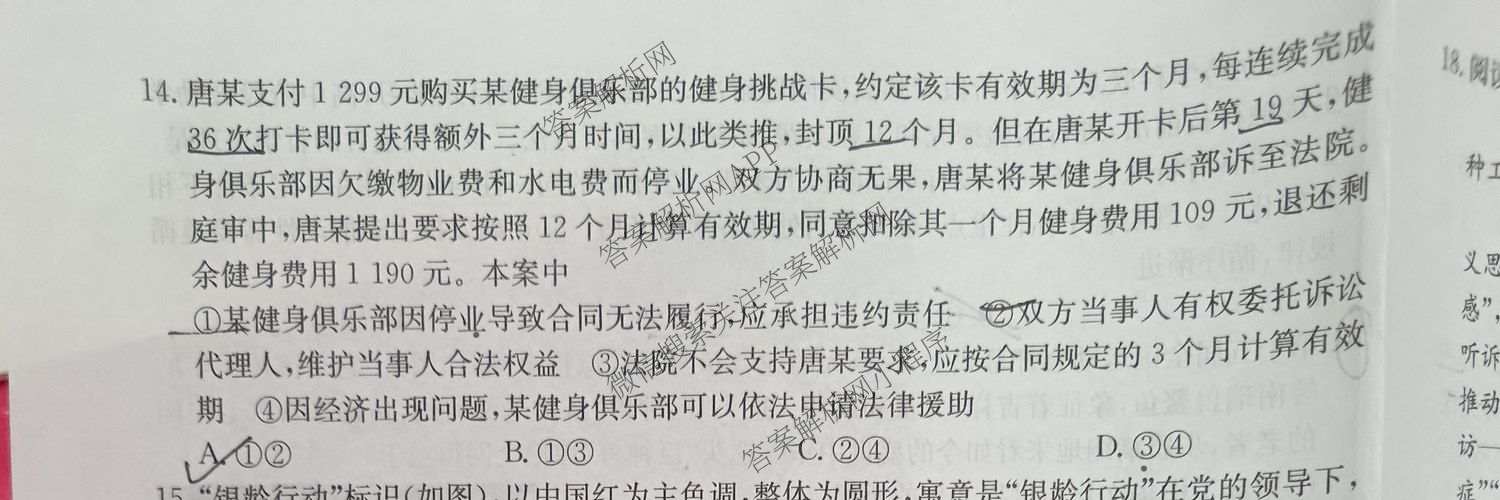 14. 唐某支付1 299元购买某健身俱乐部的健身挑战卡,约定该卡有效期为三个月,每连续完成
36次打卡即可获得额外三个月时间,以此类推,封顶12个月。但在唐某开卡后第19天,健
身俱乐部因欠缴物业费和水电费而停业。双方协商无果,唐某将某健身俱乐部诉至法院。
庭审中,唐某提出要求按照12个月计算有效期,同意扣除其一个月健身费用109元,退还剩
余健身费用1 190元。本案中
①某健身俱乐部因停业导致合同无法履行,应承担违约责任 ②双方当事人有权委托诉讼
代理人,维护当事人合法权益 ③法院不会支持唐某要求,应按合同规定的3个月计算有效
期 ④因经济出现问题,某健身俱乐部可以依法申请法律援助
A. ①② B. ①③ C. ②④ D. ③④
15. “银龄行动”标识(如图),以中国红为主色调,整体为圆形,寓意是“银龄行动”在党的领导下,
18. 阅读
种工
义思
感”,
听诉
推动
访一
症”“
答案解析网
答案解析网APP
答案解析网
微信搜索关注答案解析网
答案解析网小程序